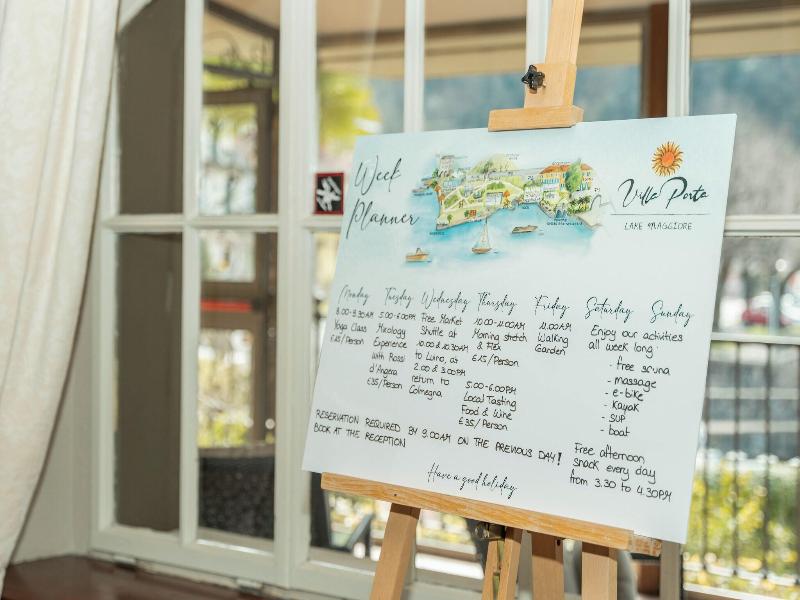 Week
Planner
Villa Porta
LAKE MAGGIORE
Monday
8.00-8.30AM
Yoga Class
£15/Person
Tuesday
5.00-6.00PM
Mixology
Experience
with Rossi
d'Angera
£35/Person
Wednesday
Free Market
Shuttle at
10.00 & 10.30AM
to Luino, at
2.00 & 3.00PM
return to
Colmegna
Thursday
10.00-11.00AM
Morning stretch
& Flex
£15/Person
5.00-6.00PM
Local Tasting
Food & Wine
£35/Person
Friday
11.00AM
Walking
Garden
Saturday Sunday
Enjoy our activities
all week long:
- free sauna
- massage
- e-bike
- kayak
- SUP
- boat
Free afternoon
snack every day
from 3.30 to 4.30PM
RESERVATION REQUIRED BY 9.00AM ON THE PREVIOUS DAY!
BOOK AT THE RECEPTION
Have a good holiday